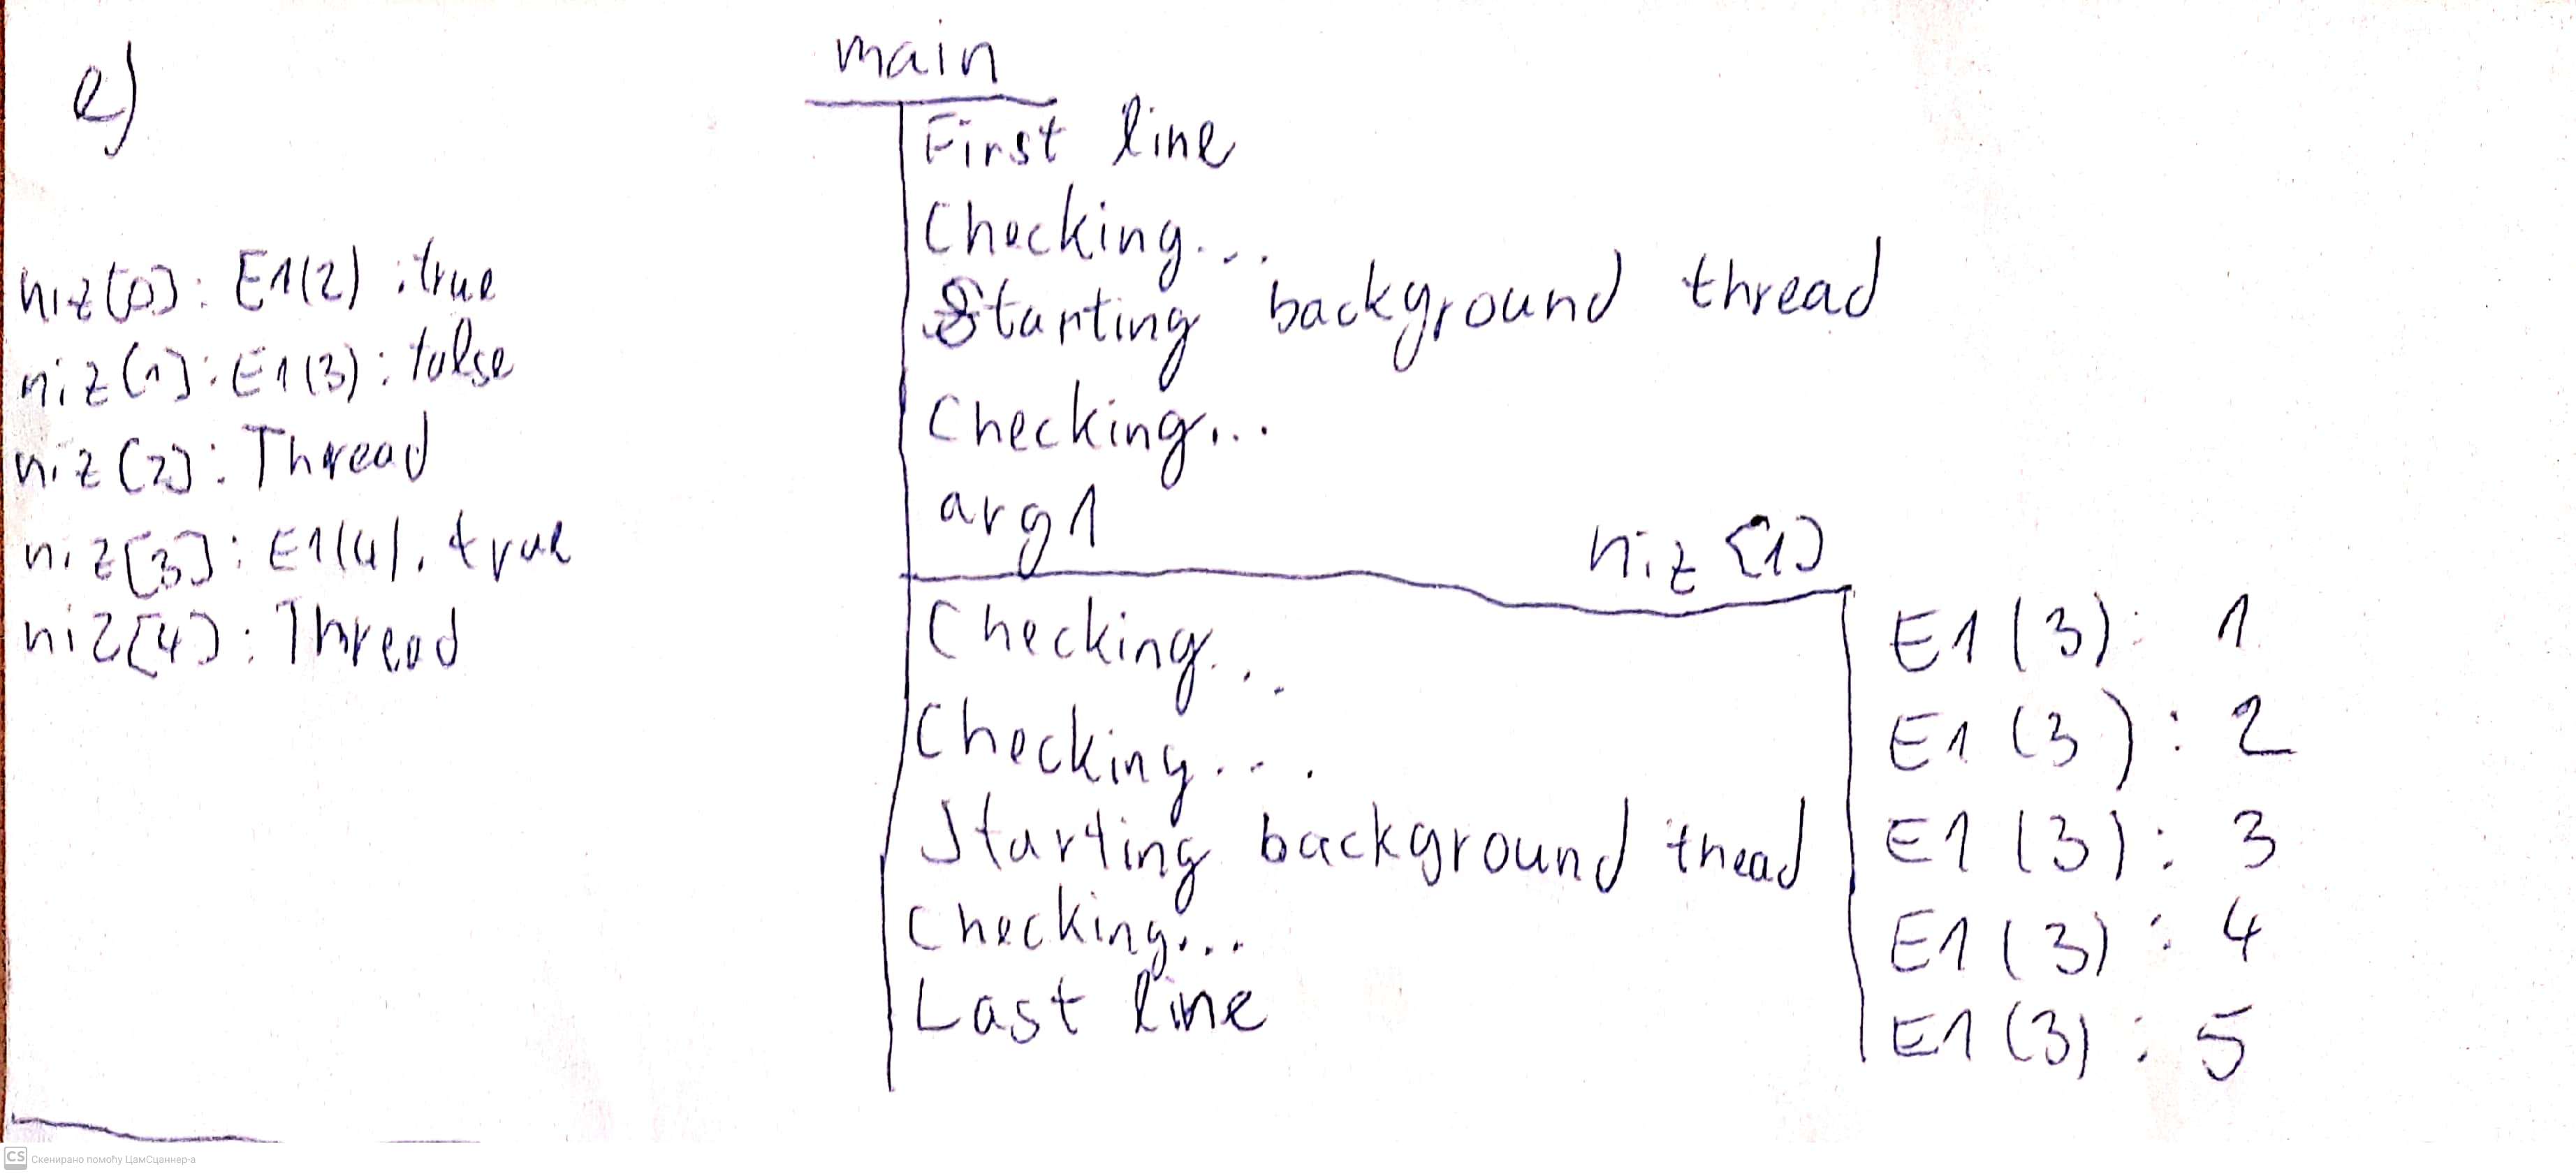 e)
niz[0]: E1(2) : true
niz[1]: E1(3) : false
niz[2]: Thread
niz[3]: E1(4). true
niz[4]: Thread
main
First line
Checking...
Starting background thread
Checking...
arg1
niz[1]
Checking...
Checking...
Starting background thead
Checking...
Last line
E1(3): 1
E1(3): 2
E1(3): 3
E1(3): 4
E1(3): 5
CS Скенирано помоћу ЦамСцаннер-а